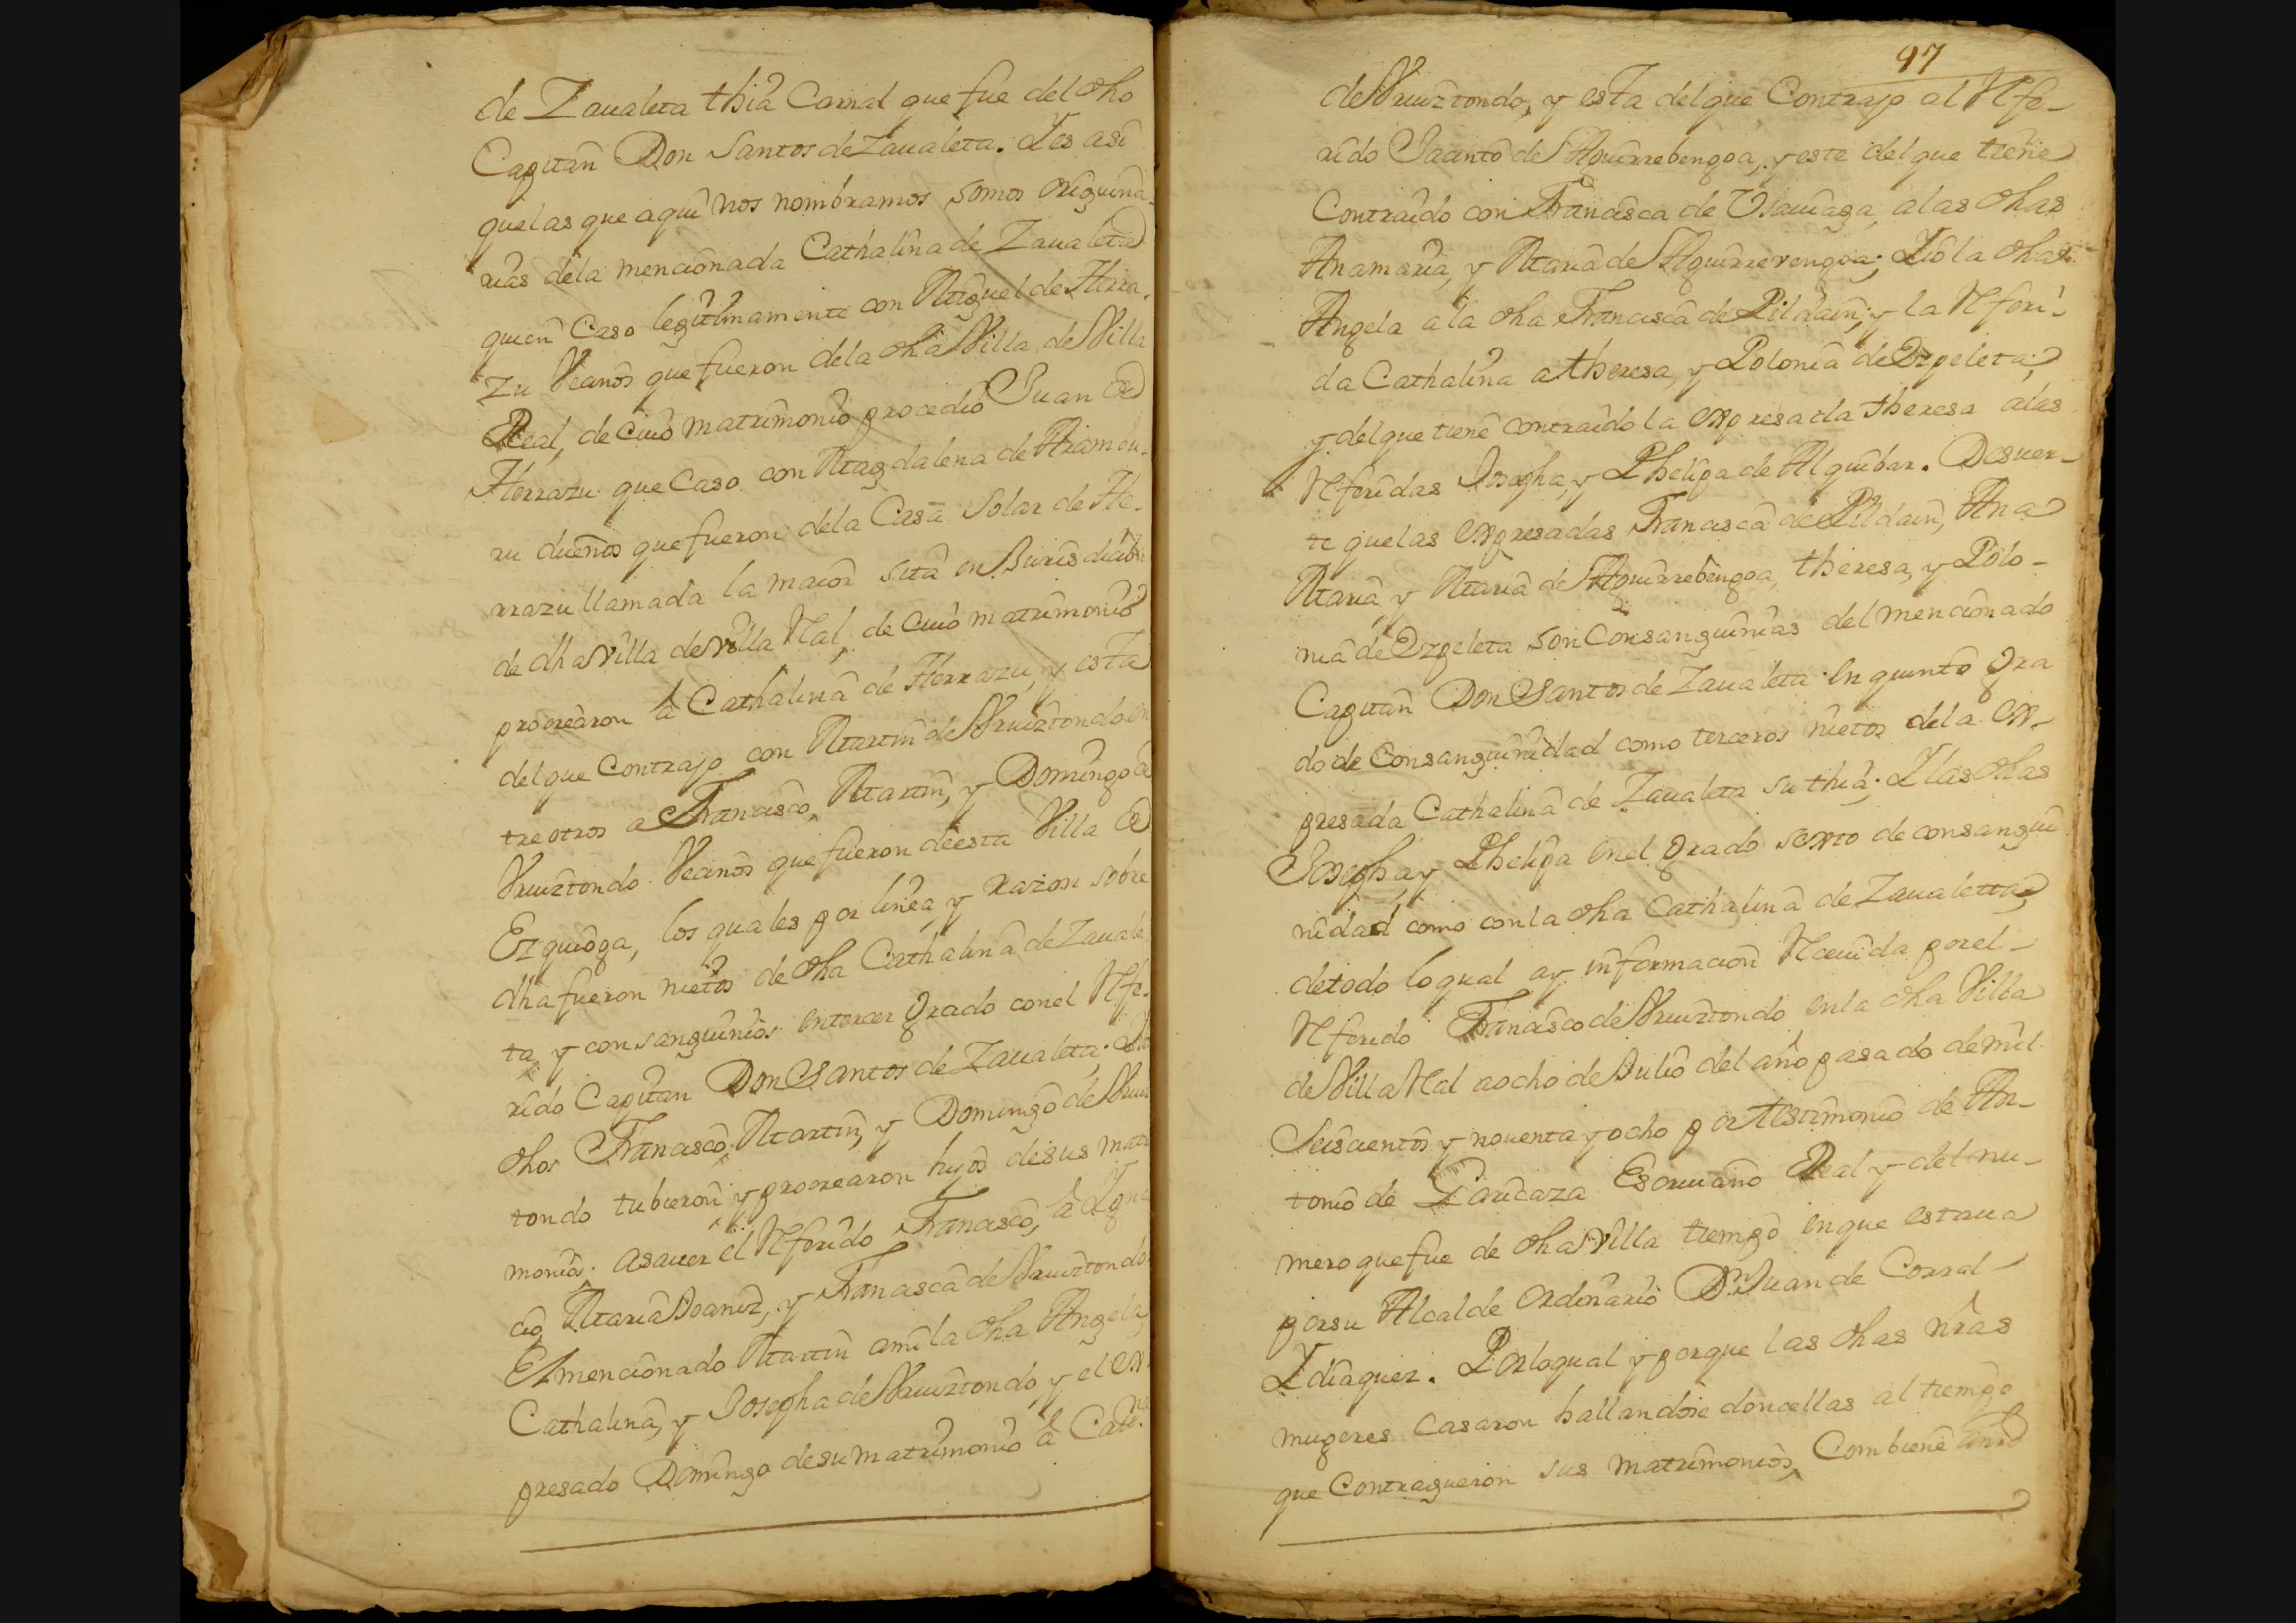 de Zaualeta thia Carnal que fue del dho
Capitan Don Santos de Zaualeta. Y es asi
que las que aqui nos nombramos somos origina-
rias dela mencionada Cathalina de Zaualeta
quien Caso legitimamente con Miguel de Herra-
zu Vecinos que fueron dela dha Villa de Villa
Real, de cuio matrimonio procedio Juan de
Herrazu que Caso con Magdalena de Arambu-
ru dueños que fueron dela Casa Solar de He-
rrazu llamada la maior sita en Jurisdicion
de dha Villa de Villa Rral, de cuio matrimonio
procrearon à Cathalina de Herrazu, y esta
del que Contrajo con Martin de Vruiztondo en
tre otros a Francisco, Martin, y Domingo de
Vruiztondo Vecinos que fueron de esta Villa de
Ezquioga, los quales por linea, y razon sobre
dha fueron nietos de dha Cathalina de Zauale
ta, y consanguinios en tercer grado con el Rrefe-
rido Capitan Don Santos de Zaualeta; Y los
dhos Francisco, Martin, y Domingo de Vruiz
tondo tubieron, y procrearon hijos de sus matri
monios. Asauer el Rreferido Francisco, à Igna
cio, Maria Joaniz, y Francisca de Vruiztondo
El mencionado Martin a mi la dha Angela,
Cathalina, y Josepha de Vruiztondo, y el ex
presado Domingo de su matrimonio à Cat.na
97
de Vruiztondo, y esta del que Contrajo al Rrefe-
rido Jacinto de Aguirrebengoa, y este del que tiene
Contraido con Francisca de Vsauiaga, a las dhas
Ana maria, y Maria de Aguirrevengoa; Yio la dha
Angela a la dha Francisca de Pildain; y la Rreferi-
da Cathalina a theresa, y Polonia de Ezpeleta;
y del que tiene contraido la expresada theresa a las
Rreferidas Josepha, y Phelipa de Alguibar. De suer-
te que las expresadas Francisca de Pildain, Ana
Maria, y Maria de Aguirrebengoa, theresa, y Polo-
nia de Ezpeleta son Consanguinias del mencionado
Capitan Don Santos de Zaualeta en quinto Gra
do de Consanguinidad como terceros nietos dela ex-
presada Cathalina de Zaualeta su thia; Y las dhas
Josepha, y Phelipa en el grado sexto de consangui
nidad como con la dha Cathalina de Zaualetta;
de todo lo qual ay informacion Rreciuida por el-
Rreferido Francisco de Vruiztondo en la dha Villa
de Villa Rral a ocho de Julio del año pasado de mil
Seiscientos y nouenta y ocho por testimonio de An-
tonio de Laricaza Escriuano Real y del nu-
mero que fue de dha Villa tiempo en que estaua
por su Alcalde Ordinario D.n Juan de Corral-
Ydiaquez. Por lo qual y porque las dhas nras
mugeres Casaron hallandose doncellas al tiempo
que Contrageron sus matrimonios, Combiene